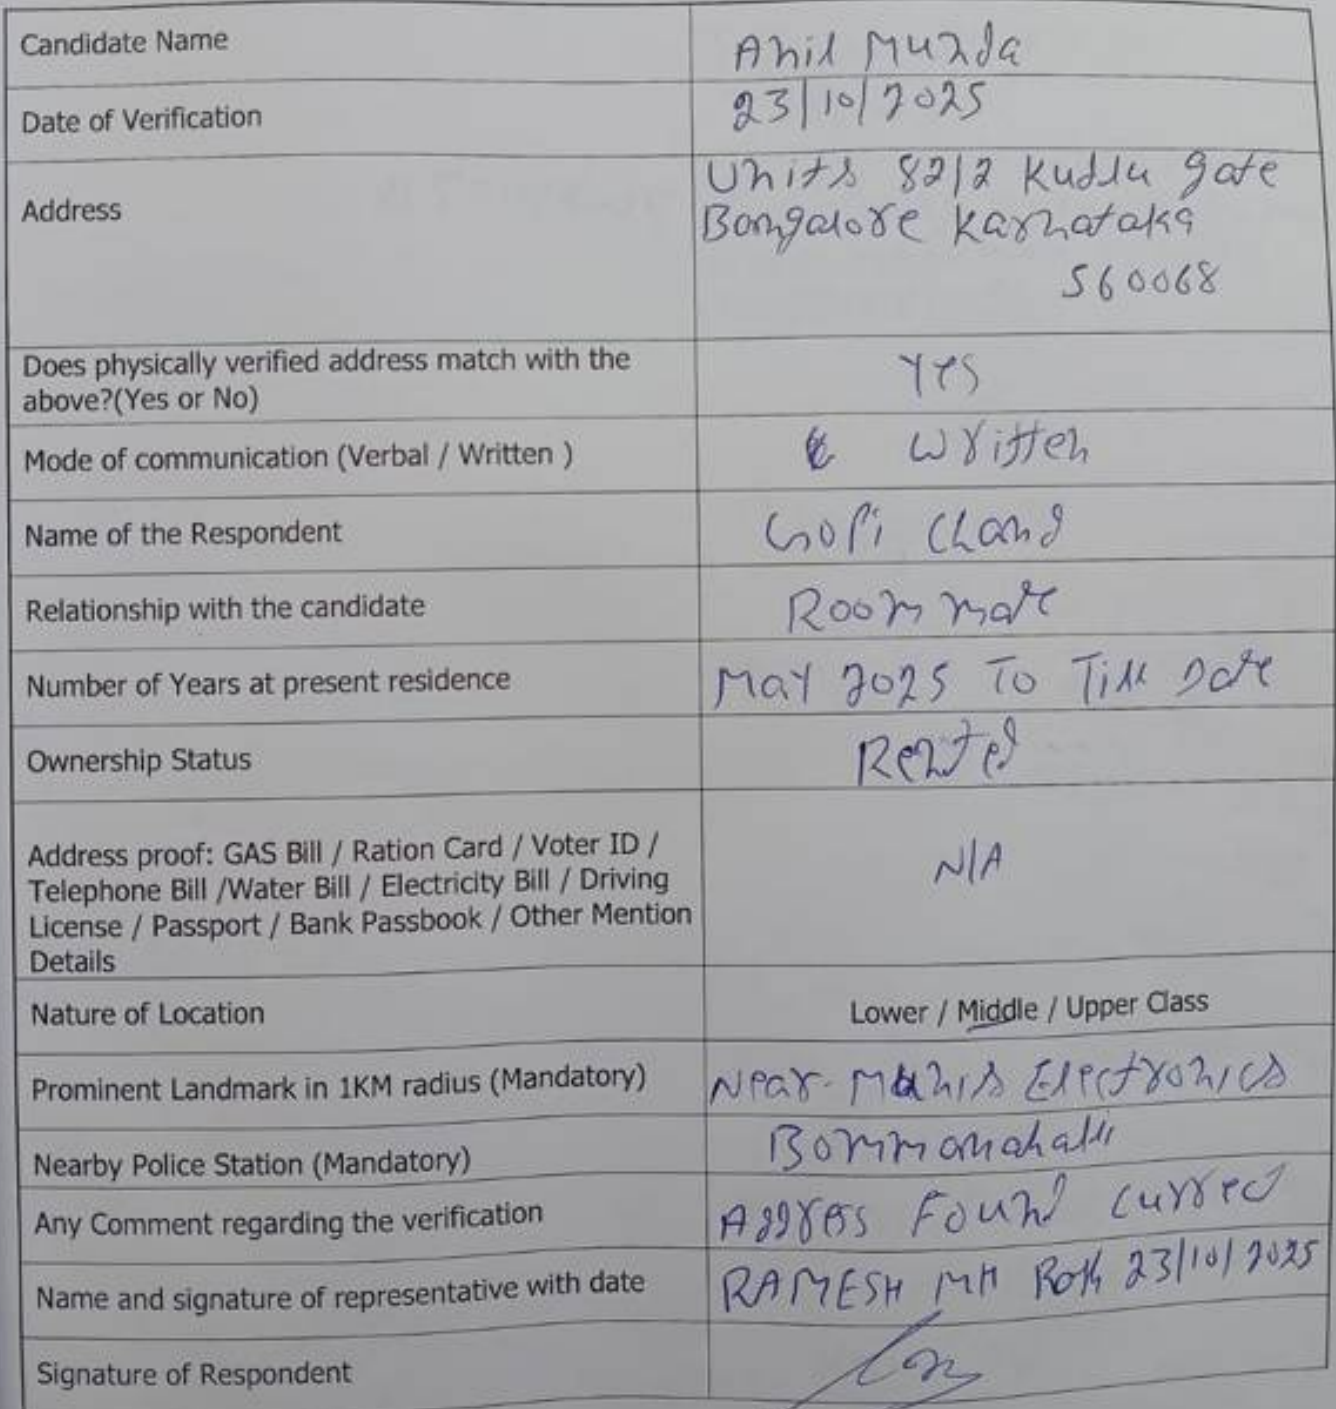 Candidate Name
Anil Munda
Date of Verification
23/10/2025
Address
Units 82/2 Kudlu gate
Bangalore Karnataka
560068
Does physically verified address match with the
above?(Yes or No)
Yes
Mode of communication (Verbal / Written )
Written
Name of the Respondent
Gopi Chand
Relationship with the candidate
Room mate
Number of Years at present residence
May 2025 To Till Date
Ownership Status
Rented
Address proof: GAS Bill / Ration Card / Voter ID /
Telephone Bill /Water Bill / Electricity Bill / Driving
License / Passport / Bank Passbook / Other Mention
Details
N/A
Nature of Location
Lower / Middle / Upper Class
Prominent Landmark in 1KM radius (Mandatory)
Near Electronics
Nearby Police Station (Mandatory)
Bommanahalli
Any Comment regarding the verification
Address Found currect
Name and signature of representative with date
RAMESH MH 23/10/2025
Signature of Respondent